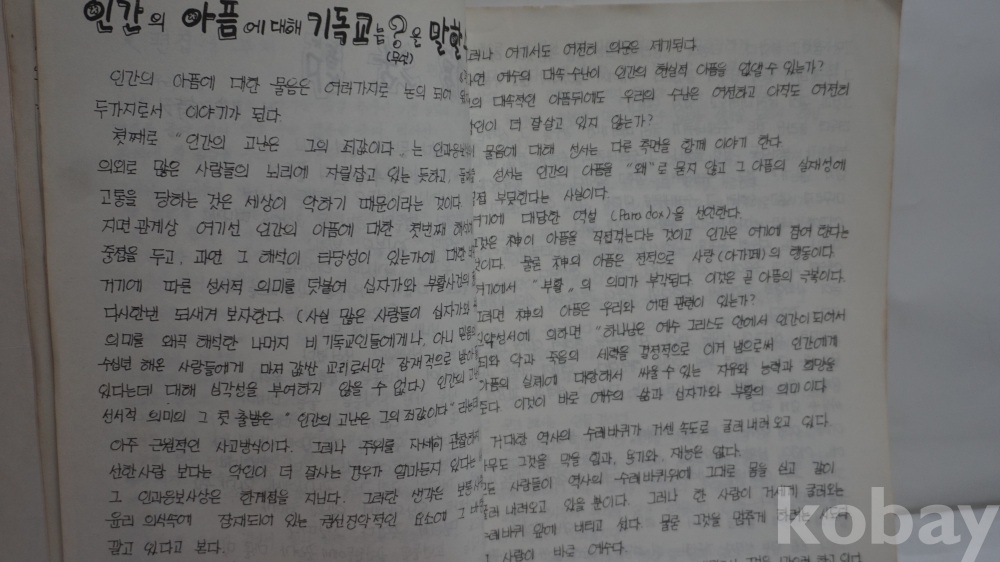 인간의 아픔에 대해 기독교는 ?은 말할
(무엇)
인간의 아픔에 대한 물음은 여러가지로 논의 되어
두가지로서 이야기가 된다.
첫째로 "인간의 고난은 그의 죄값이다"는 인과응보
의외로 많은 사람들의 뇌리에 자릴잡고 있는 듯하고, 둘째
고통을 당하는 것은 세상이 악하기 때문이라는 것이다.
지면 관계상 여기선 인간의 아픔에 대한 첫번째 해석
중점을 두고, 과연 그 해석이 타당성이 있는가에 대한
거기에 따른 성서적 의미를 덧붙여 십자가와 부활사건의
다시한번 되새겨 보자한다. (사실 많은 사람들이 십자가와
의미를 왜곡 해석한 나머지 비기독교인들에게나, 아니 믿음
수십년 해온 사람들에게 마저 값싼 교리로서만 잠재적으로
있다는데 대해 심각성을 부여하지 않을 수 없다) 인간의
성서적 의미의 그 첫 출발은 "인간의 고난은 그의 죄값이다"
아주 근원적인 사고방식이다. 그러나 주위를 자세히
선한사람 보다는 악인이 더 잘사는 경우가 얼마든지 있다는
그 인과응보사상은 한계점을 지닌다. 그러한 생각은
윤리 의식속에 잠재되어 있는 권선징악적인 요소에 그
같고 있다고 본다.
그러나 여기서도 여전히 의문은 제기된다.
과연 예수의 대속 수난이 인간의 현실적 아픔을 없앨 수 있는가?
대속적인 아픔뒤에도 우리의 수난은 여전하고 아직도 여전히
악인이 더 잘살고 있지 않는가?
물음에 대해 성서는 다른 측면을 함께 이야기 한다.
성서는 인간의 아픔을 "왜"로 묻지 않고 그 아픔의 실재성에
부딪힌다는 사실이다.
여기에 대담한 역설 (Para dox)을 선언한다.
그것은 神이 아픔을 직접겪는다는 것이고 인간은 여기에 참여한다는
것이다. 물론 神의 아픔은 전적으로 사랑 (아가페)의 행동이다.
여기에서 "부활"의 의미가 부각된다. 이것은 곧 아픔의 극복이다.
그러면 神의 아픔은 우리와 어떤 관련이 있는가?
신약성서에 의하면 "하나님은 예수 그리스도 안에서 인간이 되어서
죄와 악과 죽음의 세력을 결정적으로 이겨 냄으로써 인간에게
아픔의 실제에 대항해서 싸울 수 있는 자유와 능력과 희망을
준다. 이것이 바로 예수의 삶과 십자가와 부활의 의미 이다
거대한 역사의 수레바퀴가 거센 속도로 굴러 내려 오고 있다.
아무도 그것을 막을 힘과, 용기와 재능은 없다.
모든 사람들이 역사의 수레바퀴위에 그대로 몸을 싣고 같이
굴러 내려오고 있을 뿐이다. 그러나 한 사람이 거세게 굴러오는
수레바퀴 앞에 버티고 섰다. 물론 그것을 멈추게
사람이 바로 예수다.
kobay